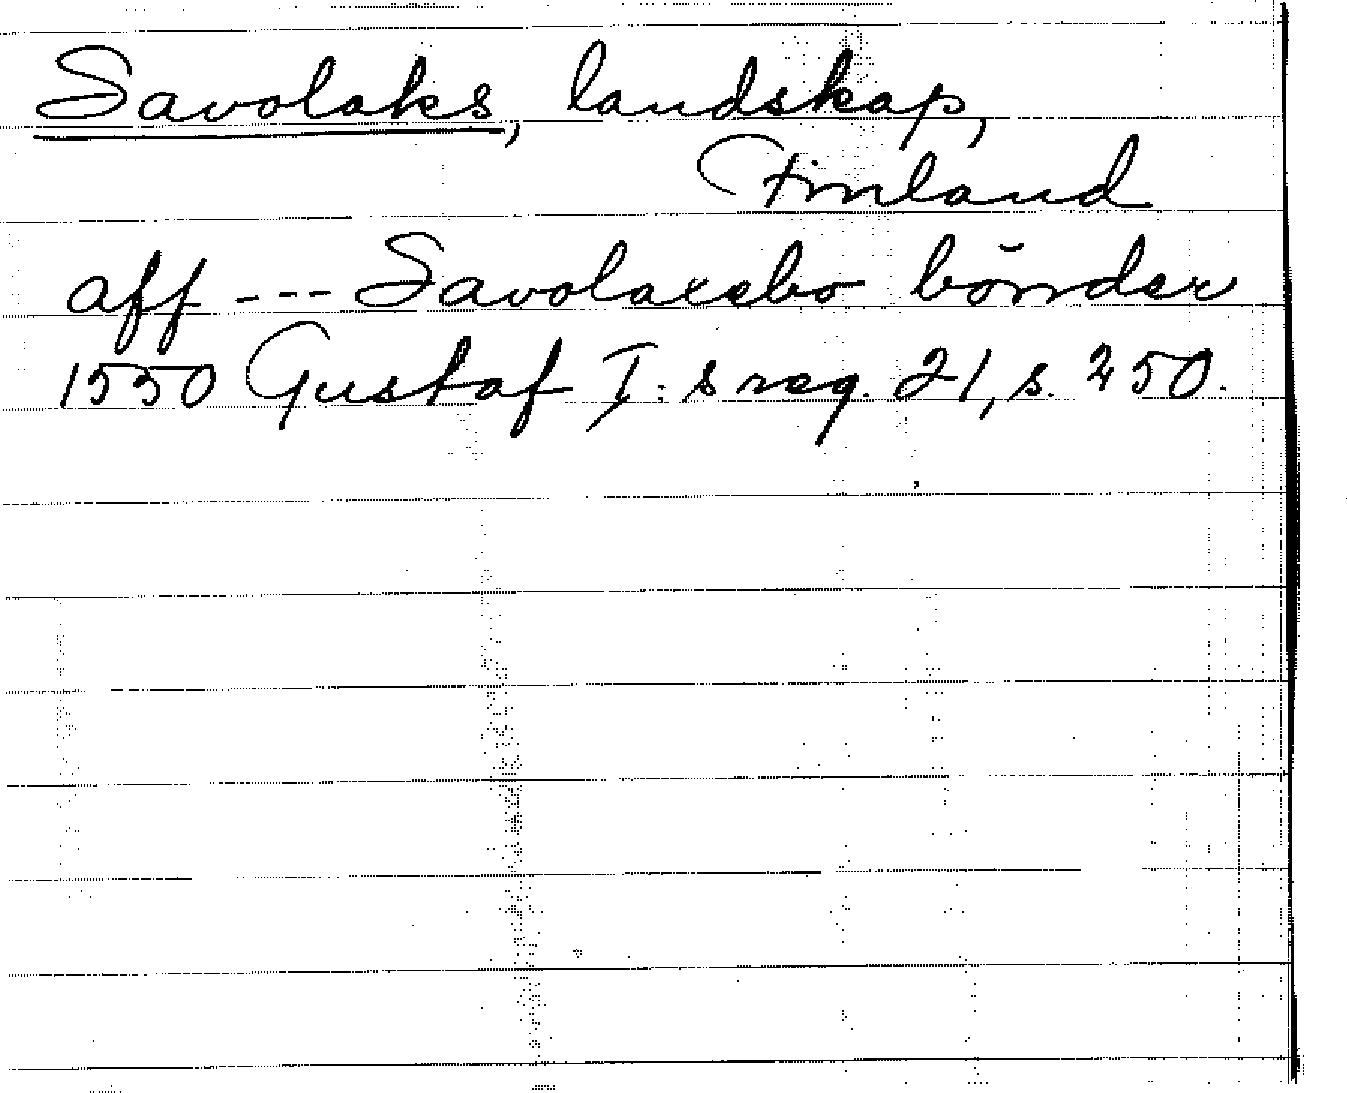 Savolaks, landskap,
Finland
aff --- Savolaxebo bönder
1550 Gustaf I:s reg. 21, s. 250.